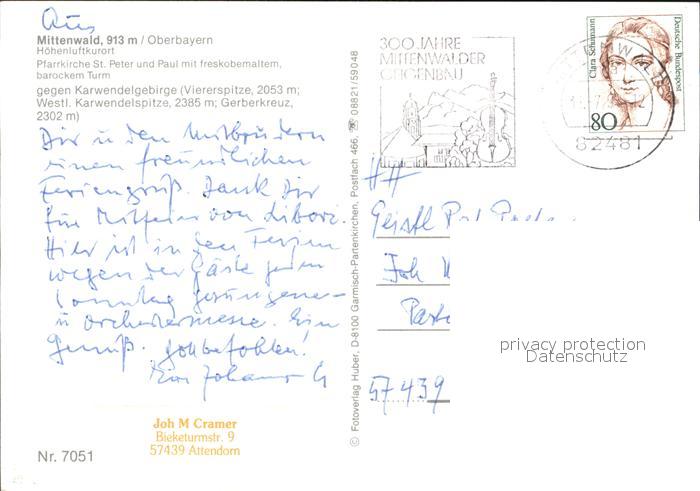 Aus
Mittenwald, 913 m / Oberbayern
Höhenluftkurort
Pfarrkirche St. Peter und Paul mit freskobemaltem,
barockem Turm
gegen Karwendelgebirge (Viererspitze, 2053 m;
Westl. Karwendelspitze, 2385 m; Gerberkreuz,
2302 m)
Dir u den Mitbrüdern
einen freundlichen
Feriengruß. Dank Dir
für Mitfeier von Libori.
Hier ist in den Ferien
wegen der Gäste jeden
Sonntag gesungene-
u Orchestermesse. Ein
Genuß. Gottbefohlen!
Johannes
Joh M Cramer
Bieketurmstr. 9
57439 Attendorn
Nr. 7051
© Fotoverlag Huber, D-8100 Garmisch-Partenkirchen, Postfach 466, ☎ 08821/59048
300 JAHRE
MITTENWALDER
GEIGENBAU
Clara Schumann
Deutsche Bundespost
80
82481
HH
Geistl
Joh
57439
privacy protection
Datenschutz